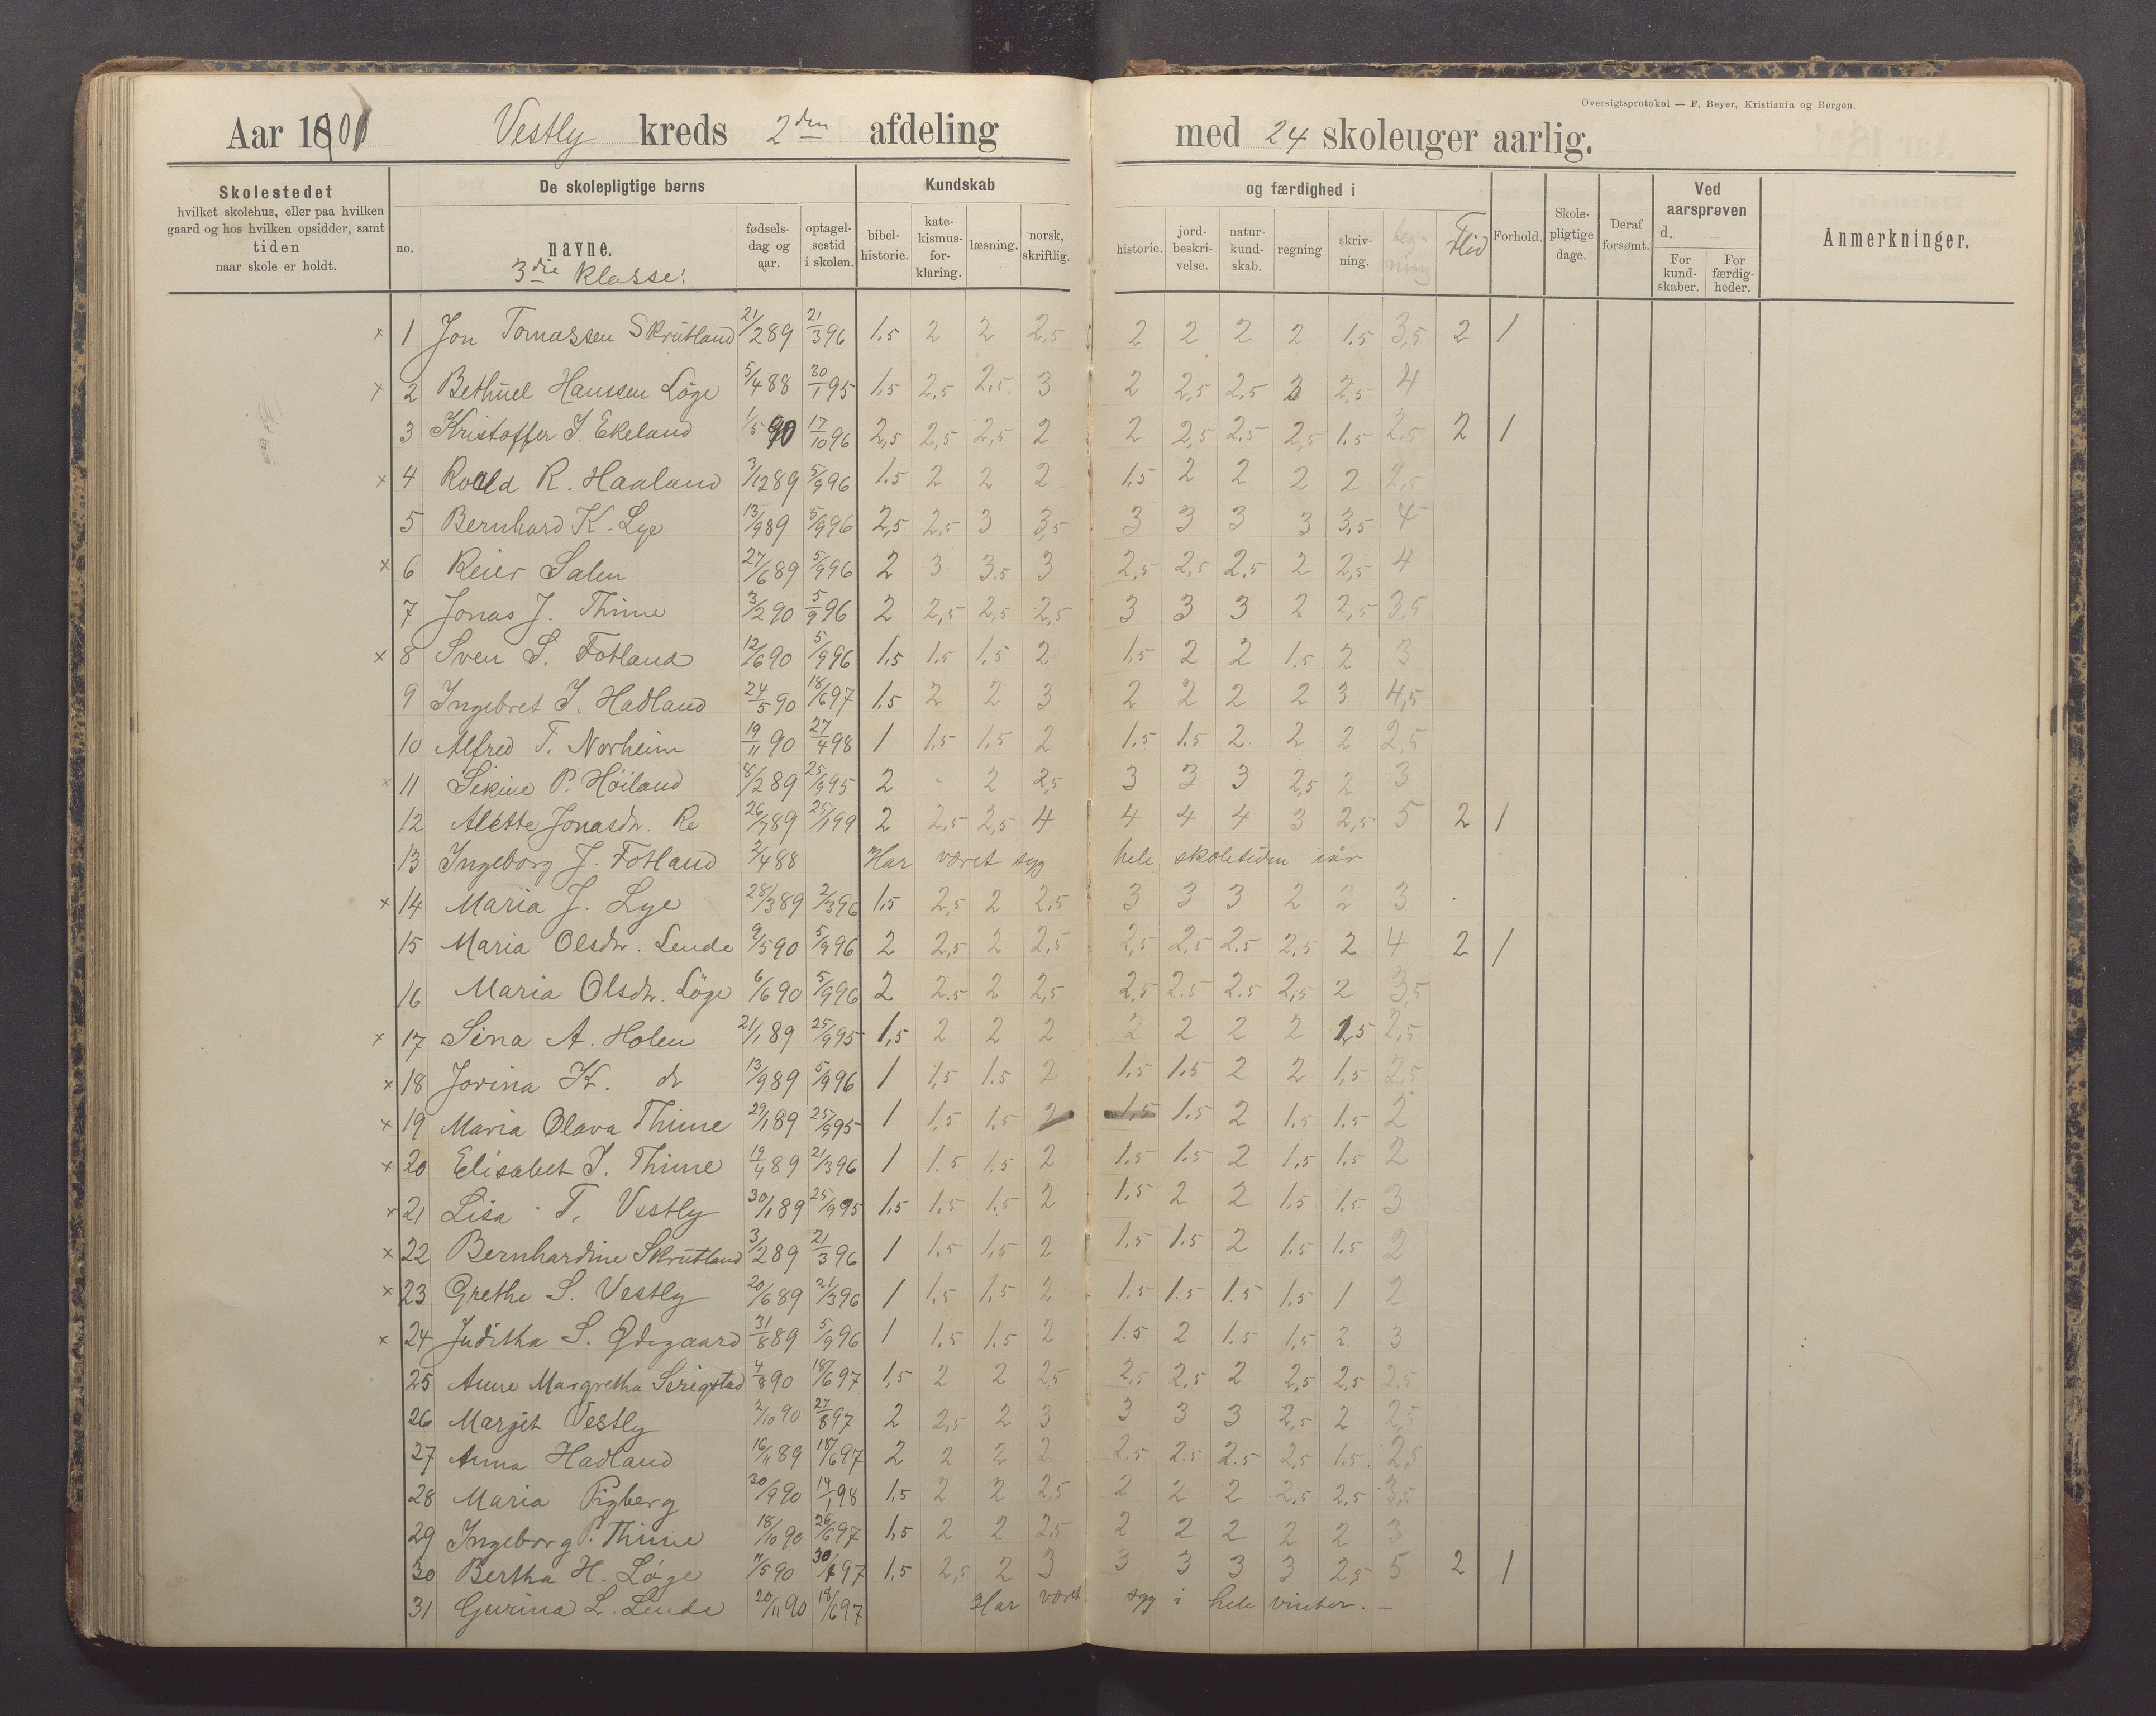 Oversigtsprotokol — F. Beyer, Kristiania og Bergen.
Aar 1901 Vestly kreds 2den afdeling med 24 skoleuger aarlig.
Skolestedet hvilket skolehus, eller paa hvilken gaard og hos hvilken opsidder, samt tiden naar skole er holdt.
De skolepligtige børns
no. navne. fødsels-dag og aar. optagel-sestid i skolen.
Kundskab og færdighed i
bibel-historie. kate-kismus-for-klaring. læsning. norsk, skriftlig. historie. jord-beskri-velse. natur-kund-skab. regning skriv-ning. teg-ning Flid Forhold. Skole-pligtige dage. Deraf forsømt.
Ved aarsprøven d.
For kund-skaber. For færdig-heder.
Anmerkninger.
3die Klasse!
x 1 Jon Tomassen Skrutland 21/2 89 21/3 96 1.5 2 2 2,5 2 2 2 2 1.5 3,5 2 1
x 2 Bethuel Hanssen Löge 5/4 88 30/1 95 1,5 2,5 2,5 3 2 2,5 2,5 3 2,5 4
3 Kristoffer I. Ekeland 1/5 90 17/10 96 2,5 2,5 2,5 2 2 2,5 2.5 2,5 1.5 2,5 2 1
x 4 Roald R. Haaland 3/12 89 5/9 96 1.5 2 2 2 1.5 2 2 2 2 2,5
5 Bernhard K. Lye 13/9 89 5/9 96 2,5 2,5 3 3,5 3 3 3 3 3,5 4
x 6 Reier Salen 27/6 89 5/9 96 2 3 3.5 3 2,5 2,5 2.5 2 2,5 4
7 Jonas J. Thime 3/2 90 5/9 96 2 2,5 2,5 2,5 3 3 3 2 2,5 3,5
x 8 Sven S. Fotland 12/6 90 5/9 96 1,5 1.5 1,5 2 1,5 2 2 1.5 2 3
9 Ingebret I. Hadland 24/5 90 18/6 97 1.5 2 2 3 2 2 2 2 3 4,5
10 Alfred T. Norheim 19/11 90 27/4 98 1 1,5 1,5 2 1.5 1.5 2 2 2 2,5
x 11 Sekine P. Höiland 8/2 89 25/9 95 2 2 2,5 3 3 3 2,5 2 3
12 Alette Jonasdr. Re 26/7 89 25/1 99 2 2,5 2,5 4 4 4 4 3 2,5 5 2 1
13 Ingeborg J. Fotland 2/4 88 Har været syg hele skoletiden iår
x 14 Maria J. Lye 28/3 89 2/3 96 1.5 2,5 2 2.5 3 3 3 2 2 3
15 Maria Olsdr. Lende 9/5 90 5/9 96 2 2,5 2 2,5 2,5 2,5 2.5 2,5 2 4 2 1
16 Maria Olsdr. Löge 6/6 90 5/9 96 2 2.5 2 2,5 2,5 2.5 2.5 2,5 2 3,5
x 17 Sina A. Holen 21/1 89 25/9 95 1,5 2 2 2 2 2 2 2 1,5 2,5
x 18 Jorina K. do 13/9 89 5/9 96 1 1,5 1.5 2 1.5 1.5 2 2 1,5 2,5
x 19 Maria Olava Thime 29/1 89 25/9 95 1 1,5 1.5 2 1.5 1.5 2 1.5 1.5 2
x 20 Elisabet I. Thime 19/4 89 21/3 96 1 1.5 1.5 2 1.5 1.5 2 1,5 1.5 2
x 21 Lisa T. Vestly 30/1 89 25/9 95 1,5 1,5 1.5 2 1.5 2 2 1.5 1.5 3
x 22 Bernhardine Skrutland 3/2 89 21/3 96 1 1.5 1,5 2 1.5 1.5 2 1.5 1.5 2
x 23 Grethe S. Vestly 20/6 89 21/3 96 1 1,5 1,5 2 1.5 1.5 1.5 1.5 1 2
x 24 Juditha S. Ødegaard 31/8 89 5/9 96 1 1.5 1.5 2 1.5 2 1.5 1,5 2 3
25 Anne Margretha Serigstad 4/8 90 18/6 97 1,5 2 2 2,5 2,5 2,5 2 2,5 2,5 2,5
26 Margit Vestly 2/10 90 27/8 97 2 2,5 2 3 3 3 3 2,5 2 2,5
27 Anna Hadland 16/11 89 18/6 97 2 2 2 2 2.5 2.5 2.5 2,5 1.5 2,5
28 Maria Rigberg 30/9 90 14/1 98 1,5 2 2 2,5 2 2 2 2,5 2,5 3,5
29 Ingeborg P. Thime 18/10 90 26/6 97 1,5 2 2 2,5 2 2 2 2 2 3
30 Bertha H. Löge 11/5 90 30/1 97 1,5 2,5 2 3 3 3 3 3 2,5 5 2 1
31 Gurina L. Lende 20/11 90 18/6 97 Har været syg i hele vinter. –